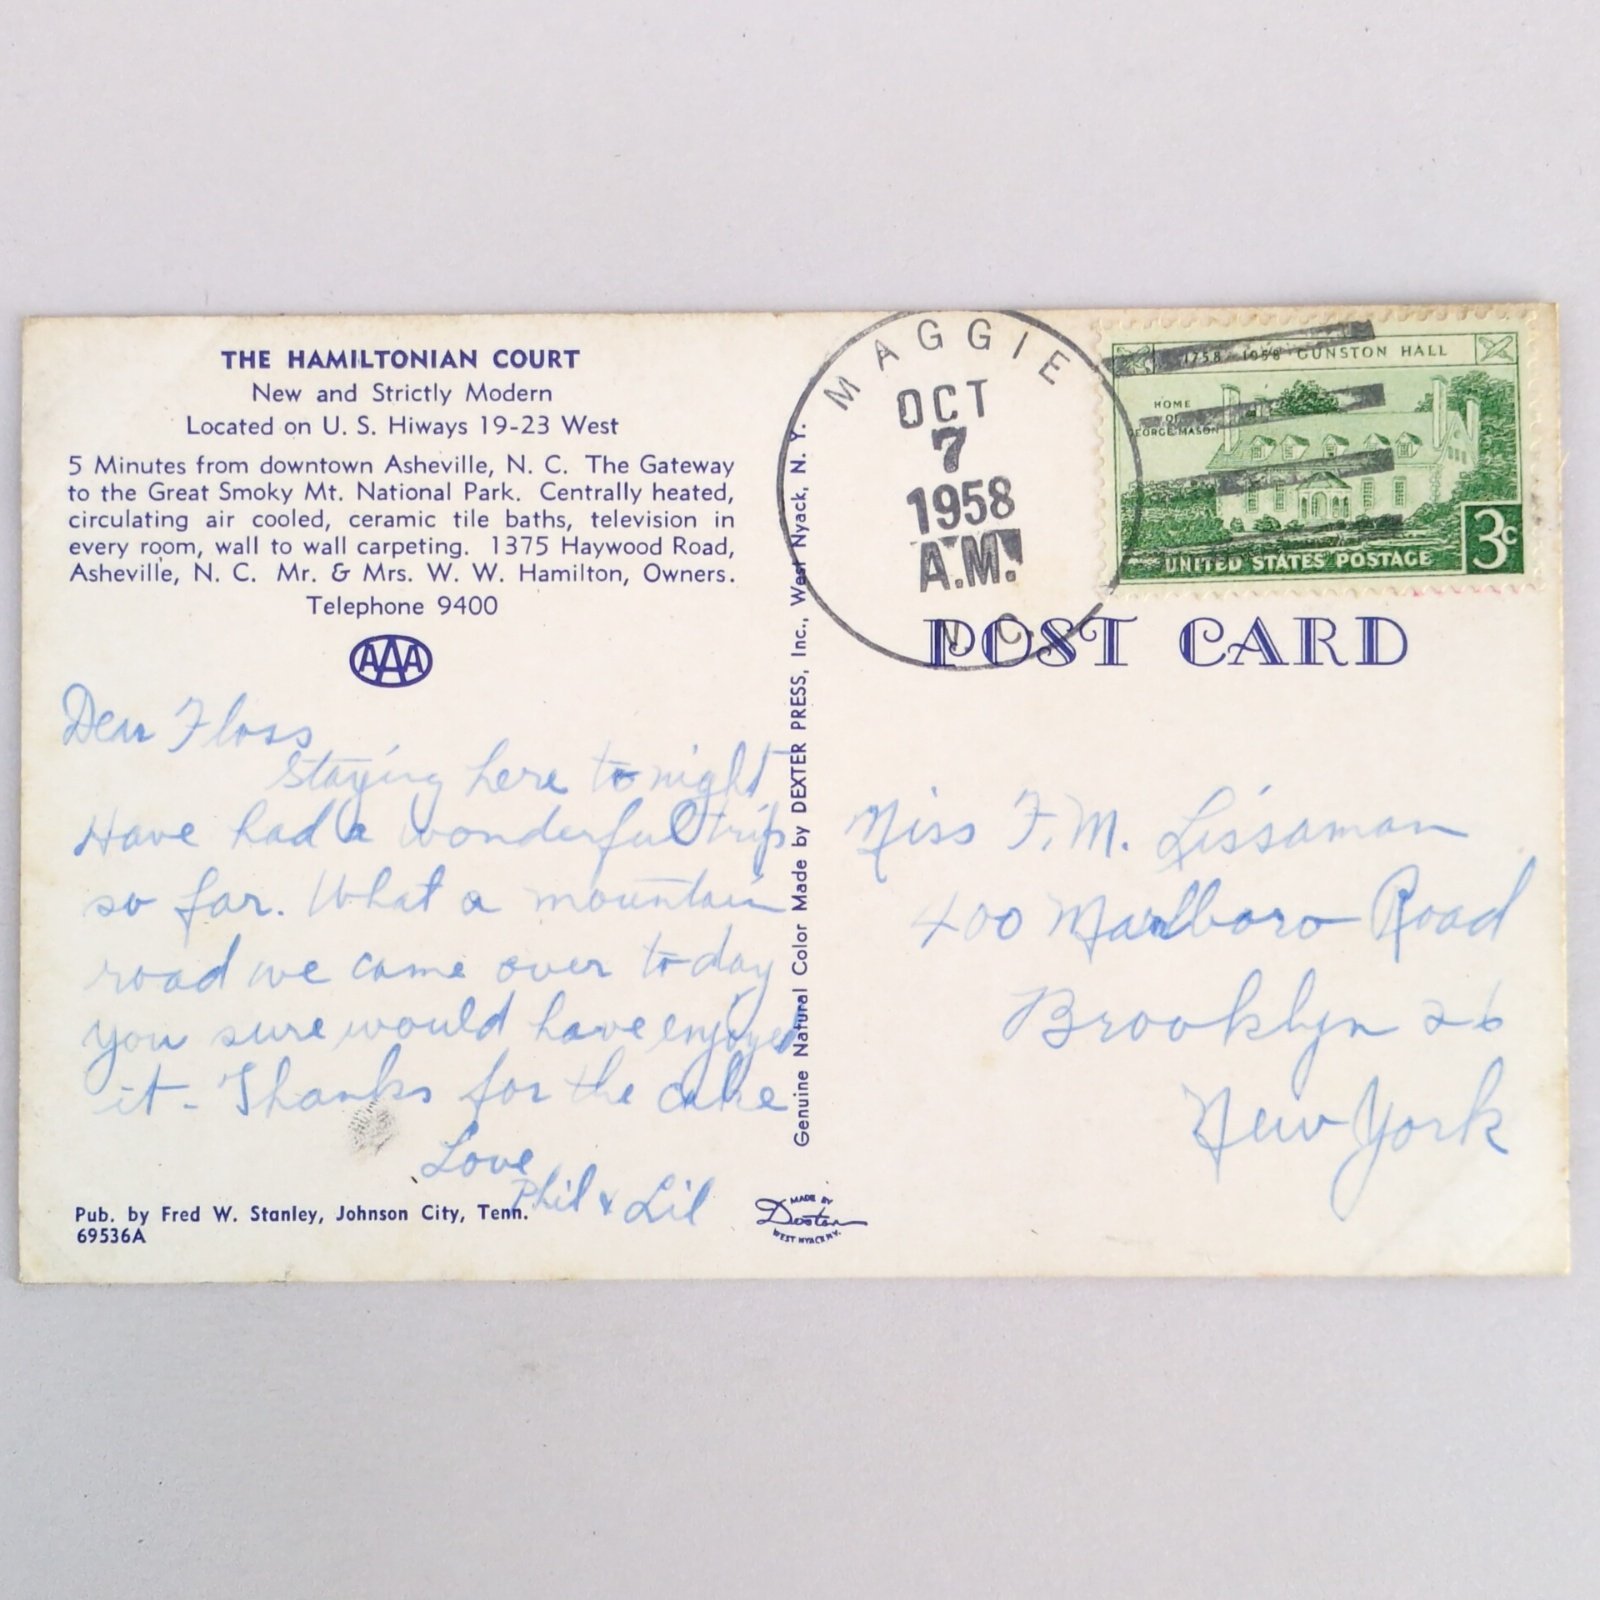 THE HAMILTONIAN COURT
New and Strictly Modern
Located on U. S. Hiways 19-23 West
5 Minutes from downtown Asheville, N. C. The Gateway
to the Great Smoky Mt. National Park. Centrally heated,
circulating air cooled, ceramic tile baths, television in
every room, wall to wall carpeting. 1375 Haywood Road,
Asheville, N. C. Mr. & Mrs. W. W. Hamilton, Owners.
Telephone 9400
AAA
Dear Floss
Staying here tonight
Have had a wonderful trip
so far. What a mountain
road we came over today
you sure would have enjoyed
it - Thanks for the cake
Love
Phil & Lil
Pub. by Fred W. Stanley, Johnson City, Tenn.
69536A
Genuine Natural Color Made by DEXTER PRESS, Inc., West Nyack, N. Y.
MADE BY
Dexter
WEST NYACK N.Y.
MAGGIE
OCT
7
1958
A.M.
N. C.
1758 1958 GUNSTON HALL
HOME
OF
GEORGE MASON
UNITED STATES POSTAGE
3c
POST CARD
Miss F. M. Lissaman
400 Marlboro Road
Brooklyn 26
New York